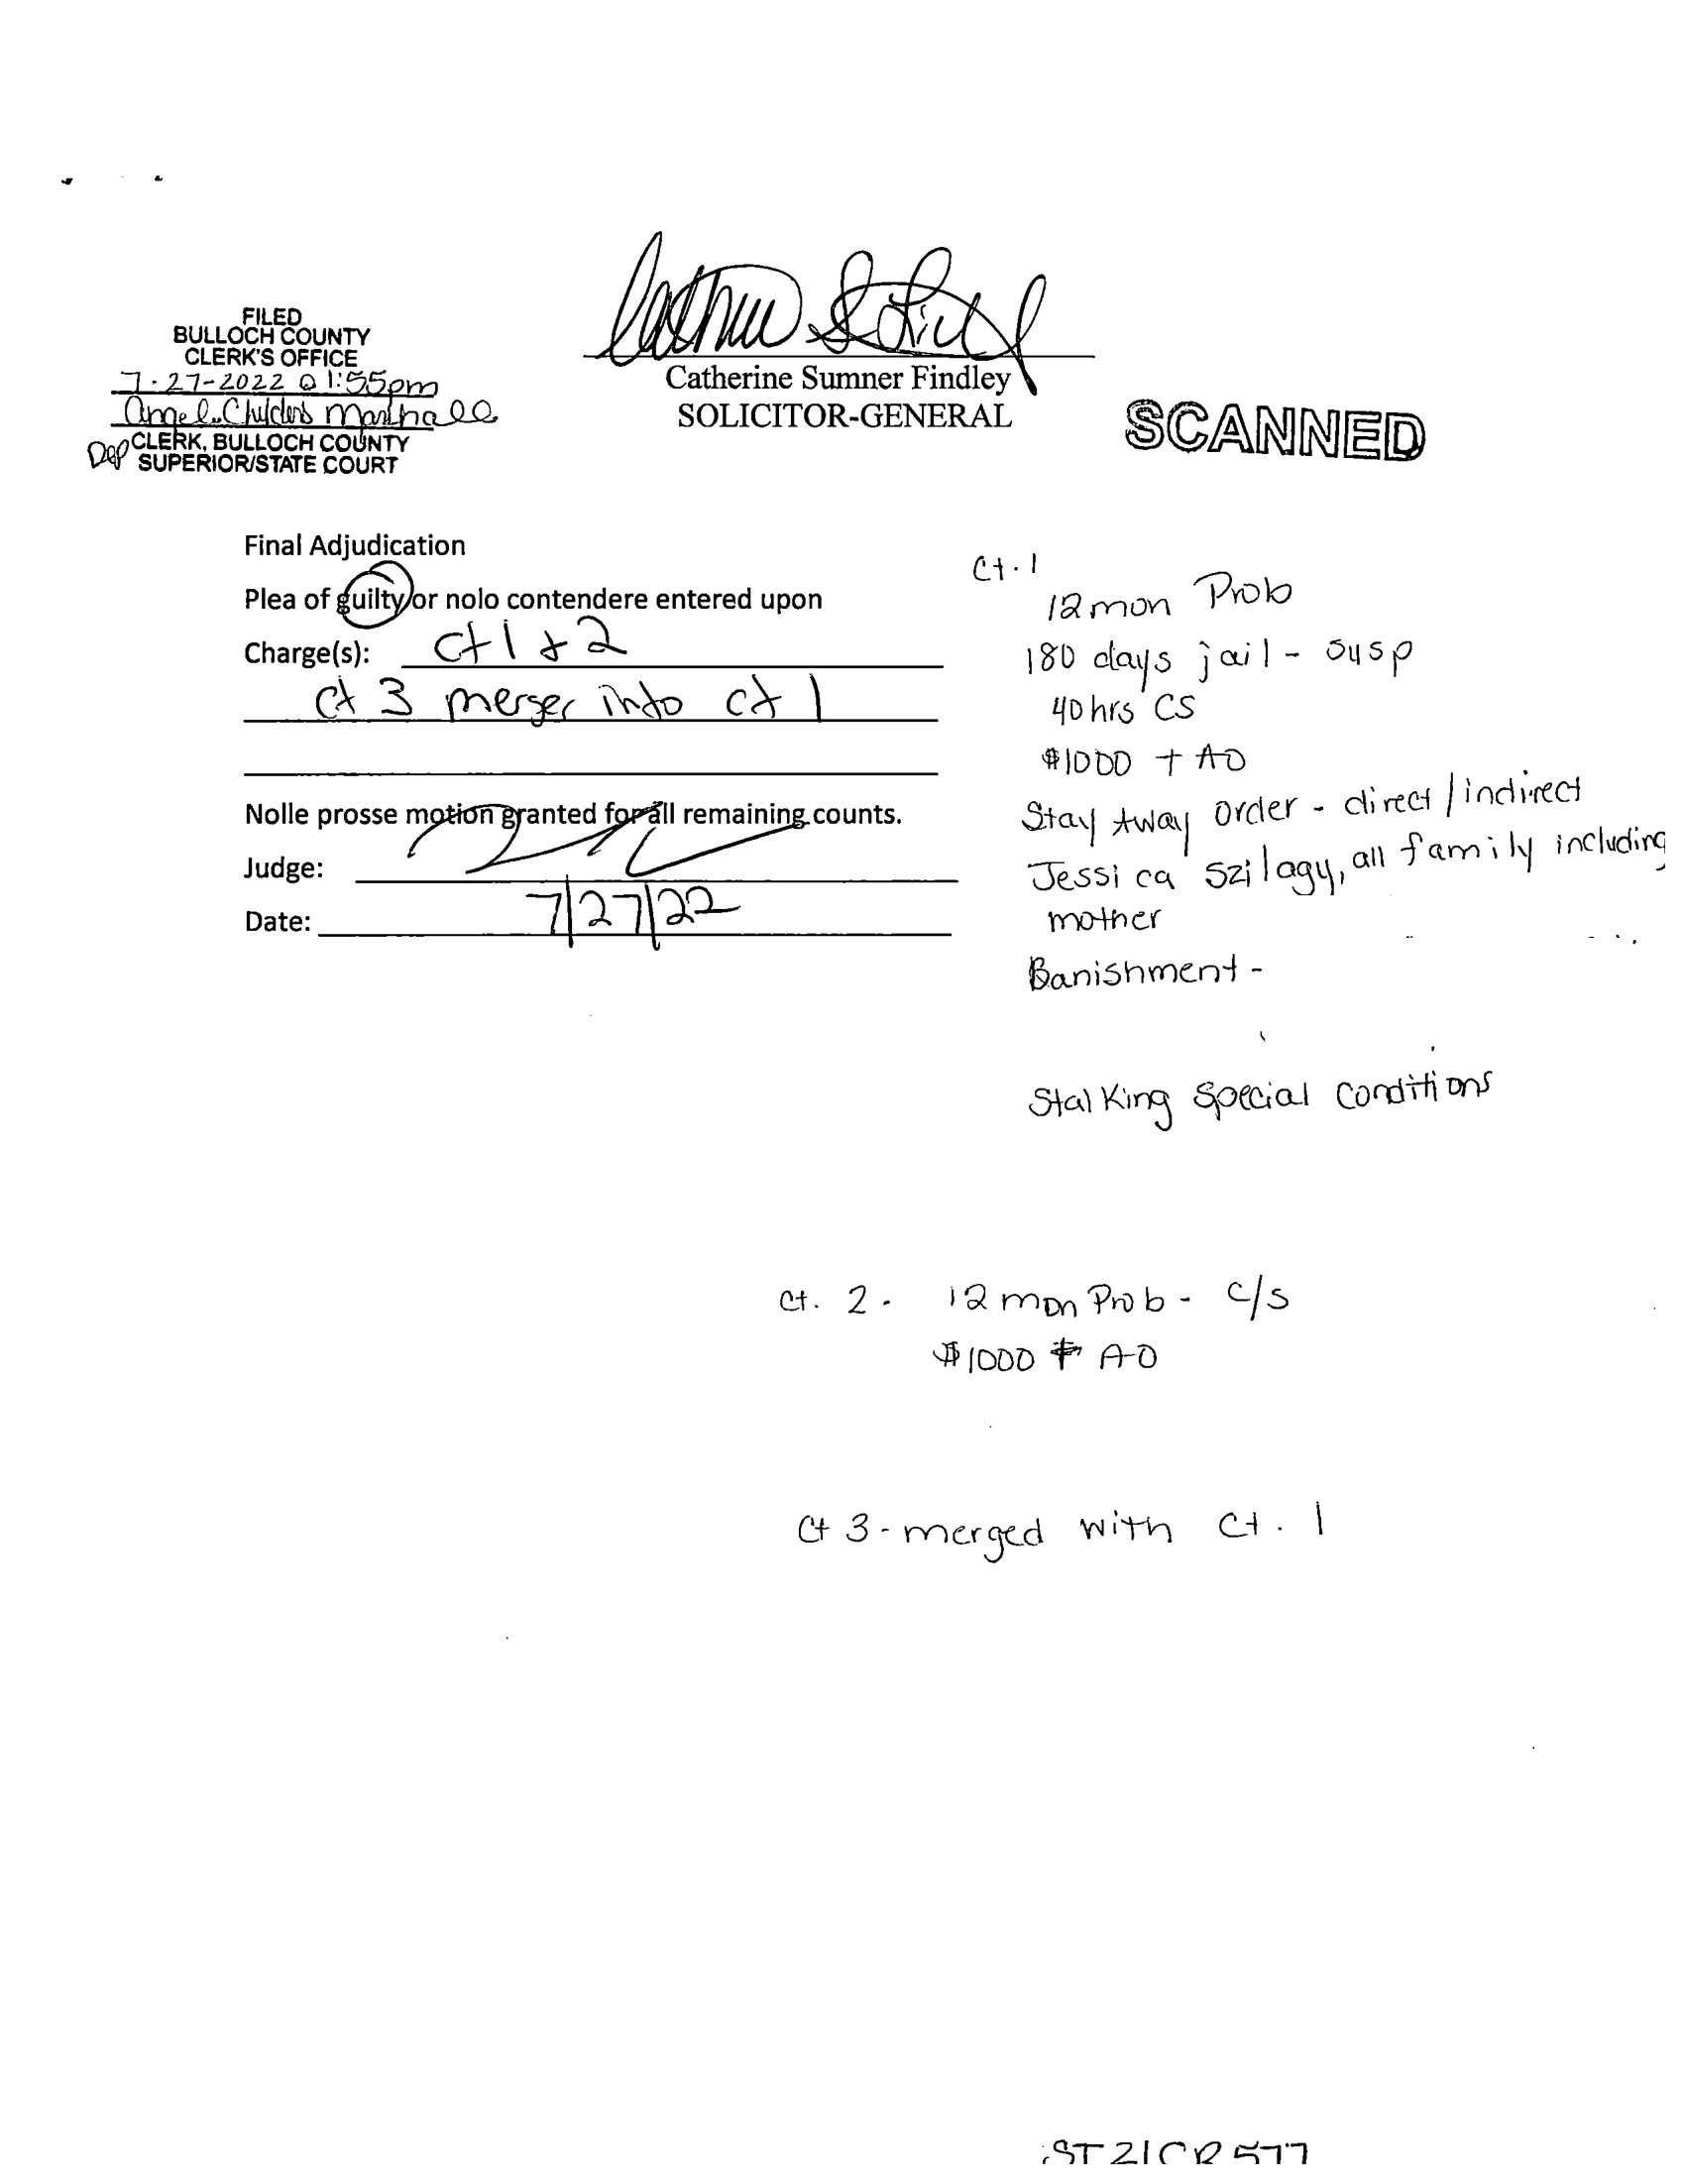 FILED
BULLOCH COUNTY
CLERK'S OFFICE
7-27-2022 @ 1:55pm
Angel Childers Marshall
Dep CLERK, BULLOCH COUNTY
SUPERIOR/STATE COURT
Catherine Sumner Findley
SOLICITOR-GENERAL
SCANNED
Final Adjudication
Plea of guilty or nolo contendere entered upon
Charge(s): ct 1 + 2
ct 3 merger into ct 1
Nolle prosse motion granted for all remaining counts.
Judge:
Date: 7/27/22
Ct. 1
12 mon Prob
180 days jail - susp
40 hrs CS
$1000 + AO
Stay Away order - direct/indirect
Jessica Szilagy, all family including
mother
Banishment -
Stalking Special Conditions
Ct. 2. 12 mon Prob - c/s
$1000 + AO
Ct 3 - merged with Ct. 1
ST21CR577